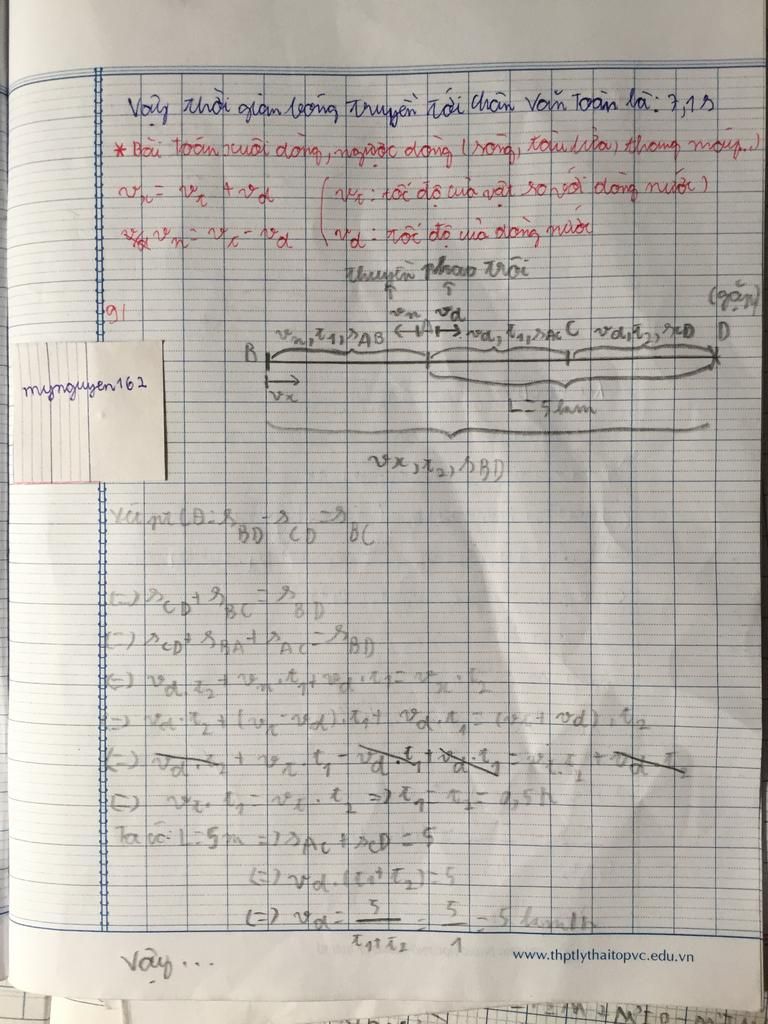 Vậy thời gian bóng truyền tới chân Văn Toàn là: 7,1s
* Bài toán xuôi dòng, ngược dòng (sông, tàu lửa, thang máy...)
vx = vt + vd (vt: tốc độ của vật so với dòng nước)
vn = vt - vd vd: tốc độ của dòng nước
thuyền phao trôi
9/
vn vd (gặp)
B vn, t1, sAB A vd, t1, sAC C vd, t2, sCD D
vx
L = 5 km
mynguyen162
vx, t2, sBD
sBD - sCD = sBC
(=) sCD + sBC = sBD
(=) sCD + sBA + sAC = sBD
(=) vd.t2 + vn.t1 + vd.t1 = vx.t2
(=) vd.t2 + (vt - vd).t1 + vd.t1 = (vt + vd).t2
(=) vd.t2 + vt.t1 - vd.t1 + vd.t1 = vt.t2 + vd.t2
(=) vt.t1 = vt.t2 => t1 = t2 = 0,5h
Ta có: L = 5m => sAC + sCD = 5
(=) vd.(t1 + t2) = 5
(=) vd = 5/(t1+t2) = 5/1 = 5 km/h
Vậy ...
www.thptlythaitopvc.edu.vn